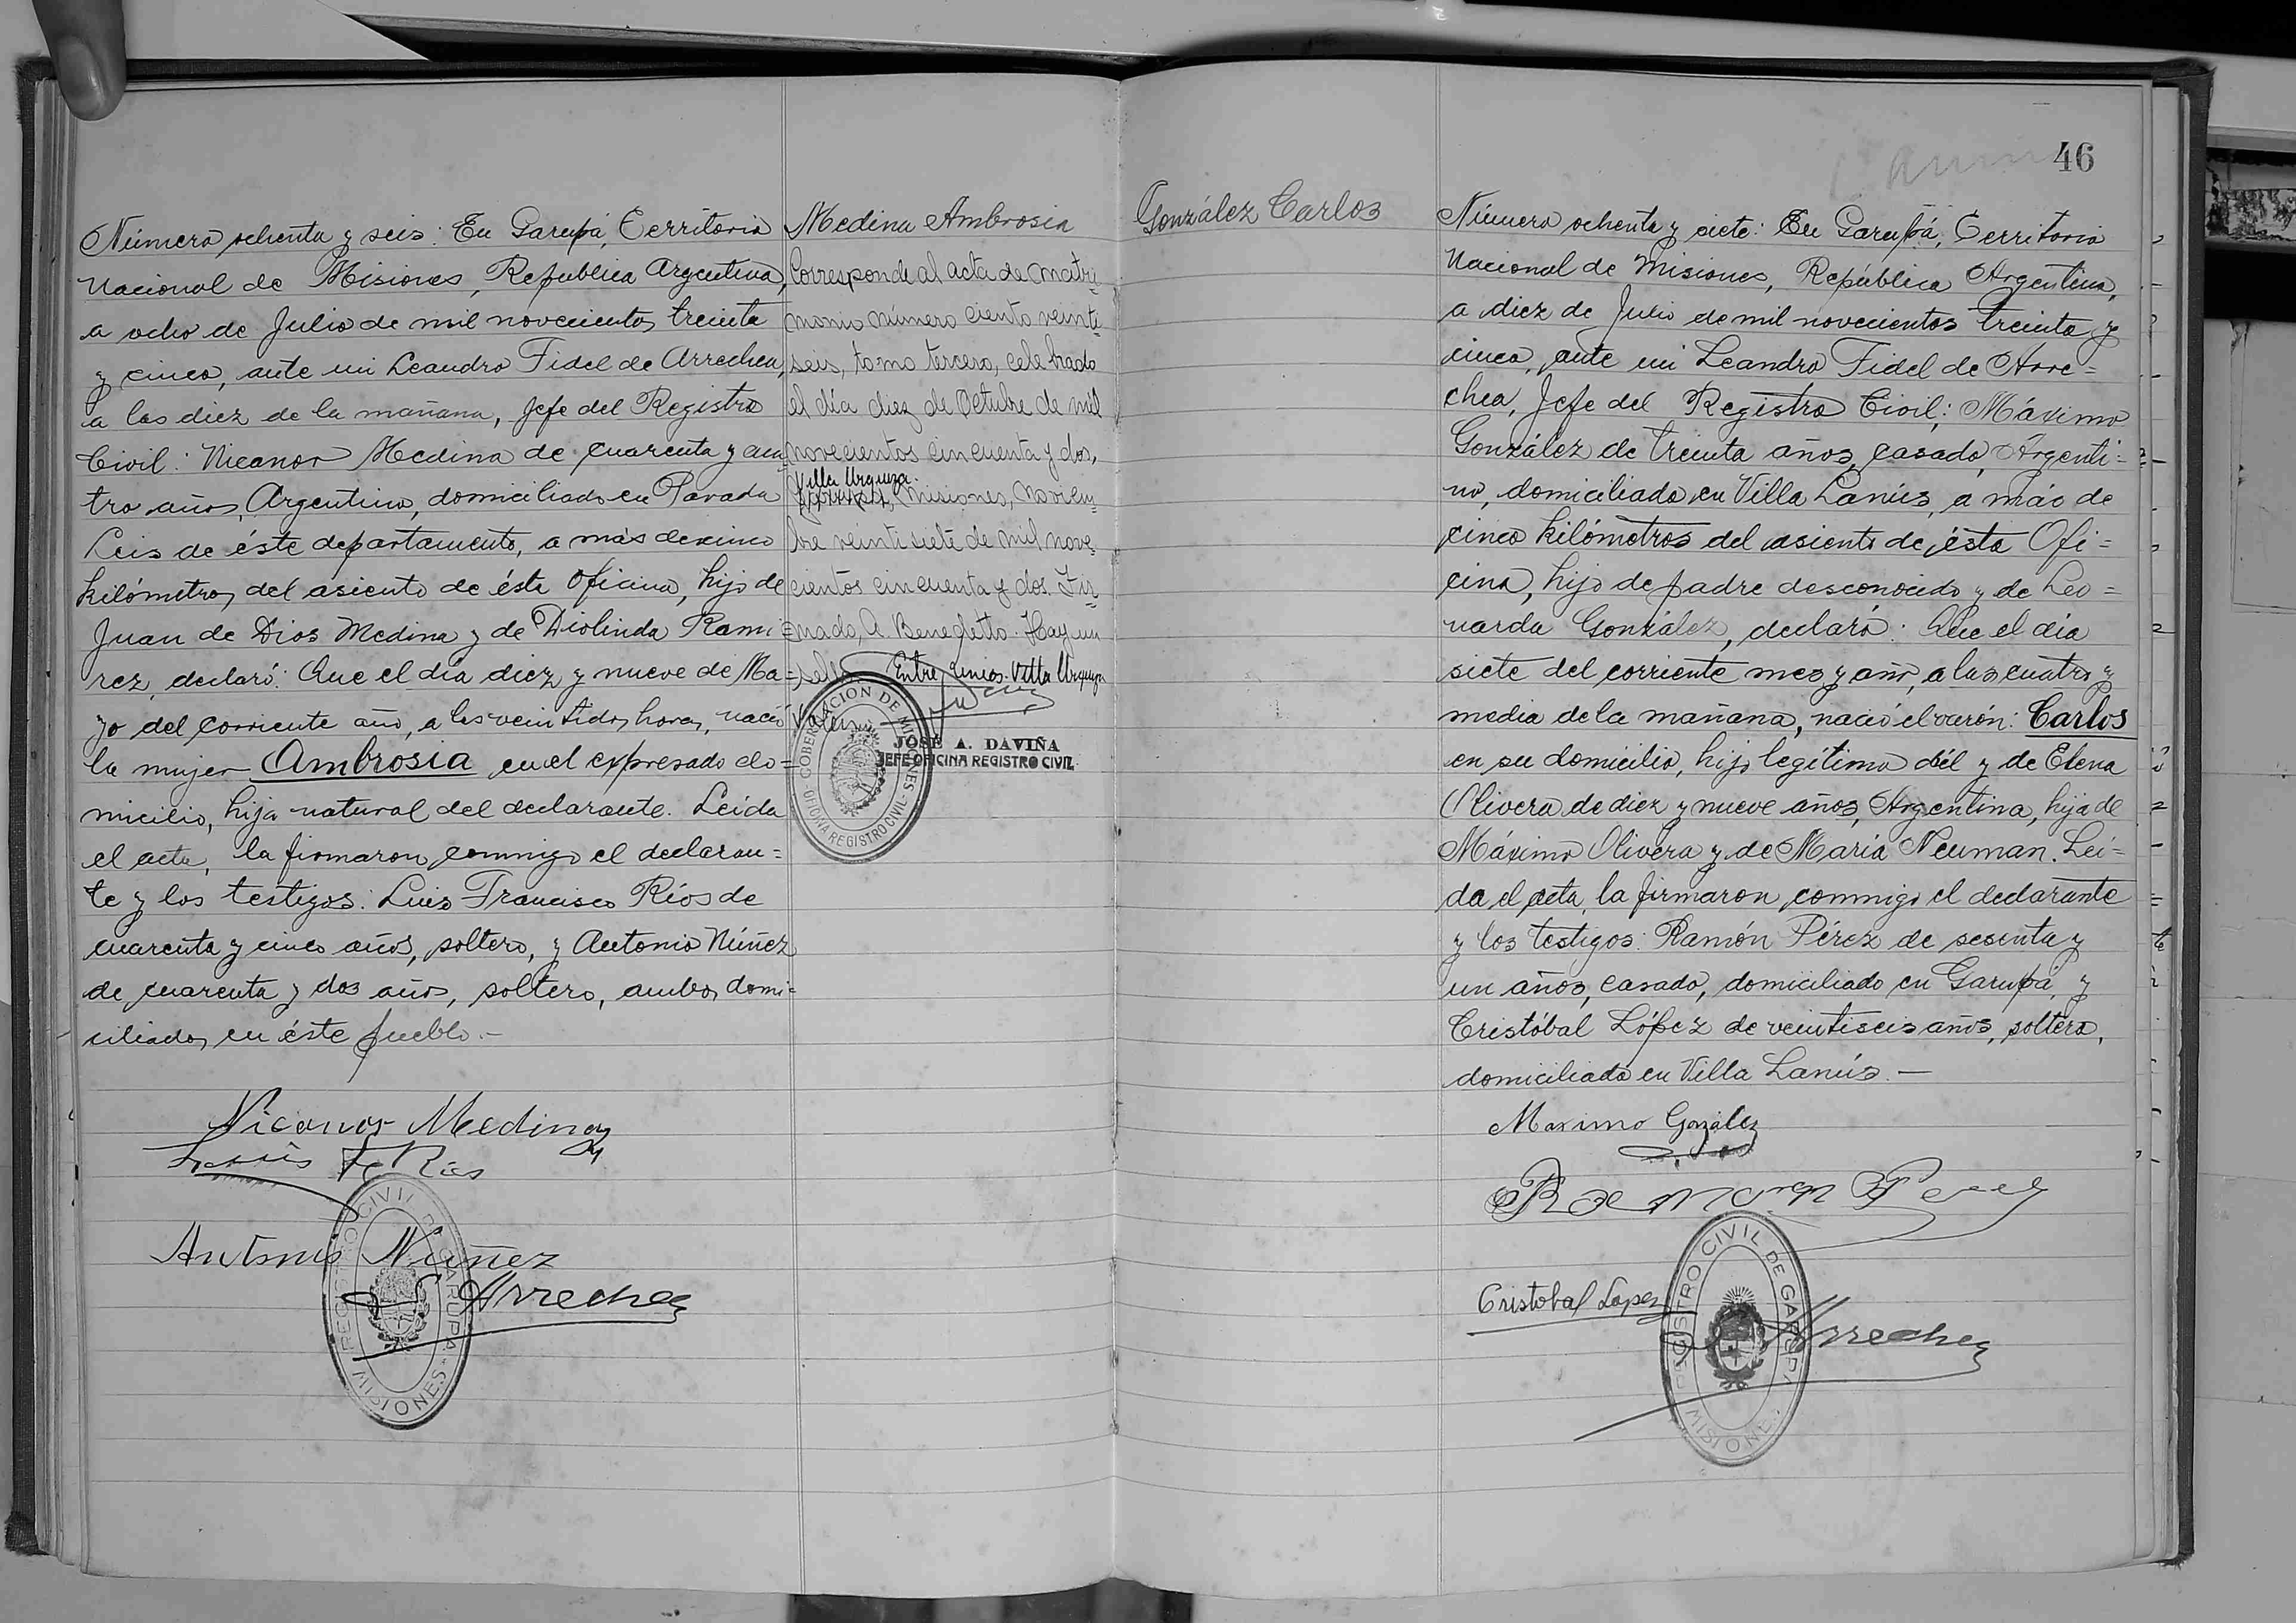 Número ochenta y seis: En Garupá, Territorio
Nacional de Misiones, Republica Argentina,
a ocho de Julio de mil novecientos treinta
y cinco, ante mi Leandro Fidel de Arrechea,
a las diez de la mañana, Jefe del Registro
Civil: Nicanor Medina de cuarenta y cua
tro años, Argentino, domiciliado en Parada
Leis de éste departamento, a más de cinco
kilómetros del asiento de ésta Oficina, hijo de
Juan de Dios Medina y de Diolinda Rami=
rez, declaró: Que el día diez y nueve de Ma=
yo del corriente año, a las veintidos horas, nació
la mujer Ambrosia en el expresado do=
micilio, hija natural del declarante. Leida
el acta, la firmaron conmigo el declaran=
te y los testigos: Luis Francisco Ríos de
cuarenta y cinco años, soltero, y Antonio Núñez
de cuarenta y dos años, soltero, ambos domi=
ciliados en éste pueblo.-
Nicanor Medina
Luis F. Rios
Antonio Núñez
Arrechea
REGISTRO CIVIL DE GARUPA
MISIONES
Medina Ambrosia
Corresponde al acta de matri-
monio número ciento veinte
seis, tomo tercero, celebrado
el día diez de Octubre de mil
novecientos cincuenta y dos,
Villa Urquiza.
Misiones, Noviem-
bre veintisiete de mil nove-
cientos cincuenta y dos. Fir-
mado, A. Benedetto. Hay un
sello Entre lineas: Villa Urquiza
Vale
GOBERNACION DE MISIONES
OFICINA REGISTRO CIVIL
JOSE A. DAVIÑA
JEFE OFICINA REGISTRO CIVIL
46
González Carlos
Número ochenta y siete: En Garupá, Territorio
Nacional de Misiones, República Argentina,
a diez de Julio de mil novecientos treinta y
cinco, ante mi Leandro Fidel de Arre=
chea, Jefe del Registro Civil; Máximo
González de treinta años, casado, Argenti=
no, domiciliado en Villa Lanús, a más de
cinco kilómetros del asiento de ésta Ofi=
cina, hijo de padre desconocido y de Leo=
narda González, declaró: Que el día
siete del corriente mes y año, a las cuatro y
media de la mañana, nació el varón: Carlos
en su domicilio, hijo legítimo dél y de Elena
Olivera de diez y nueve años, Argentina, hija de
Máximo Olivera y de María Neuman. Lei=
da el acta, la firmaron conmigo el declarante
y los testigos: Ramón Pérez de sesenta y
un años, casado, domiciliado en Garupá, y
Cristóbal López de veintiseis años, soltero,
domiciliado en Villa Lanús.-
Maximo González
Ramon Perez
Cristobal Lopez
Arrechea
REGISTRO CIVIL DE GARUPA
MISIONES